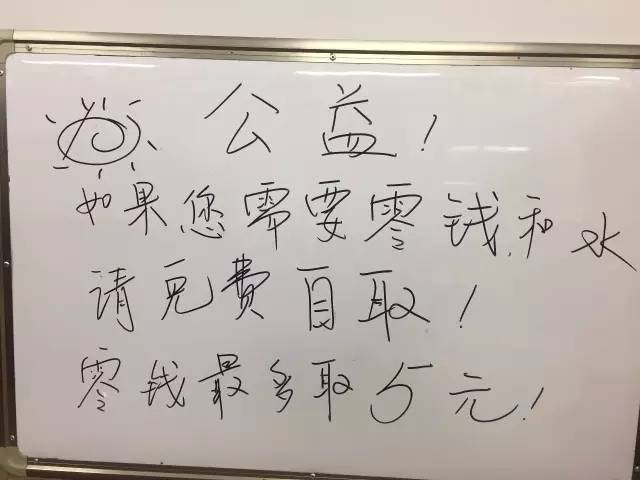 公益!
如果您需要零钱,和水
请免費自取!
零钱最多取5元!